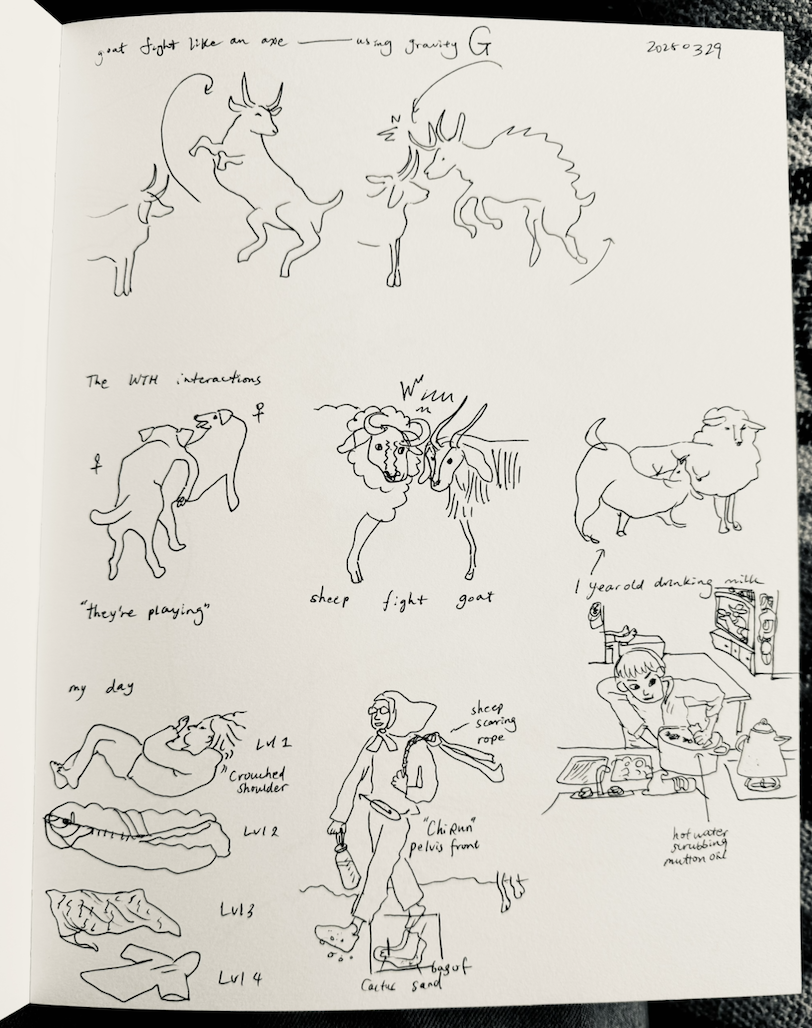 goat fight like an axe —— using gravity G
20250329
N
The WTH interactions
W
♀
♀
"they're playing"
sheep fight goat
1 year old drinking milk
my day
Lvl 1
"Crouched
shoulder
Lvl 2
Lvl 3
Lvl 4
sheep
scaring
rope
"Chi Run"
pelvis front
Cactus
bag of
sand
hot water
scrubbing
mutton oil